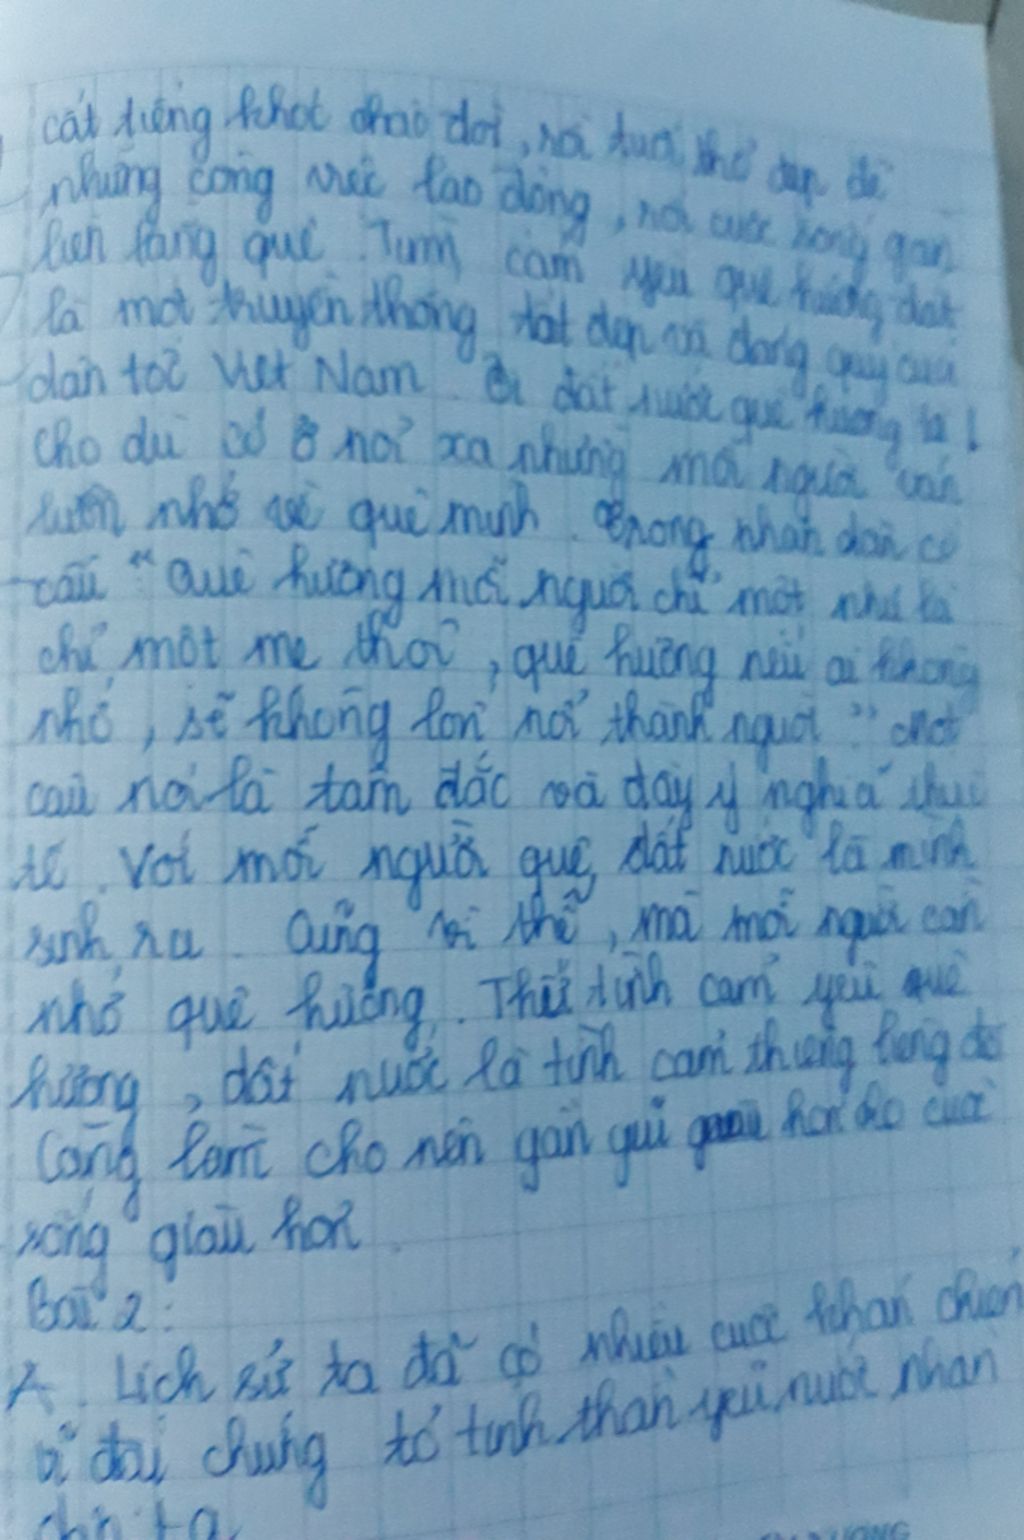 cất tiếng khóc chào đời, nơi tuổi thơ đẹp đẽ
những công việc lao động, nơi cuộc sống gắn
liền làng quê. Tình cảm yêu quê hương đất
là một truyền thống tốt đẹp và đáng quý của
dân tộc Việt Nam. Ôi đất nước quê hương ta!
cho dù có ở nơi xa nhưng mỗi người vẫn
luôn nhớ về quê mình. Trong nhân dân có
câu "Quê hương mỗi người chỉ một như là
chỉ một mẹ thôi, quê hương nếu ai không
nhớ, sẽ không lớn nổi thành người" một
câu nói là tâm đắc và đầy ý nghĩa thực
tế. Với mỗi người quê, đất nước là mình
sinh ra. Cũng vì thế, mà mỗi người cần
nhớ quê hương. Thứ tình cảm yêu quê
hương, đất nước là tình cảm thiêng liêng đó
Càng làm cho nên gần gũi hơn cuộc
sống giàu hơn.
Bài 2:
A. Lịch sử ta đã có nhiều cuộc kháng chiến
vĩ đại chứng tỏ tinh thần yêu nước nhân
dân ta